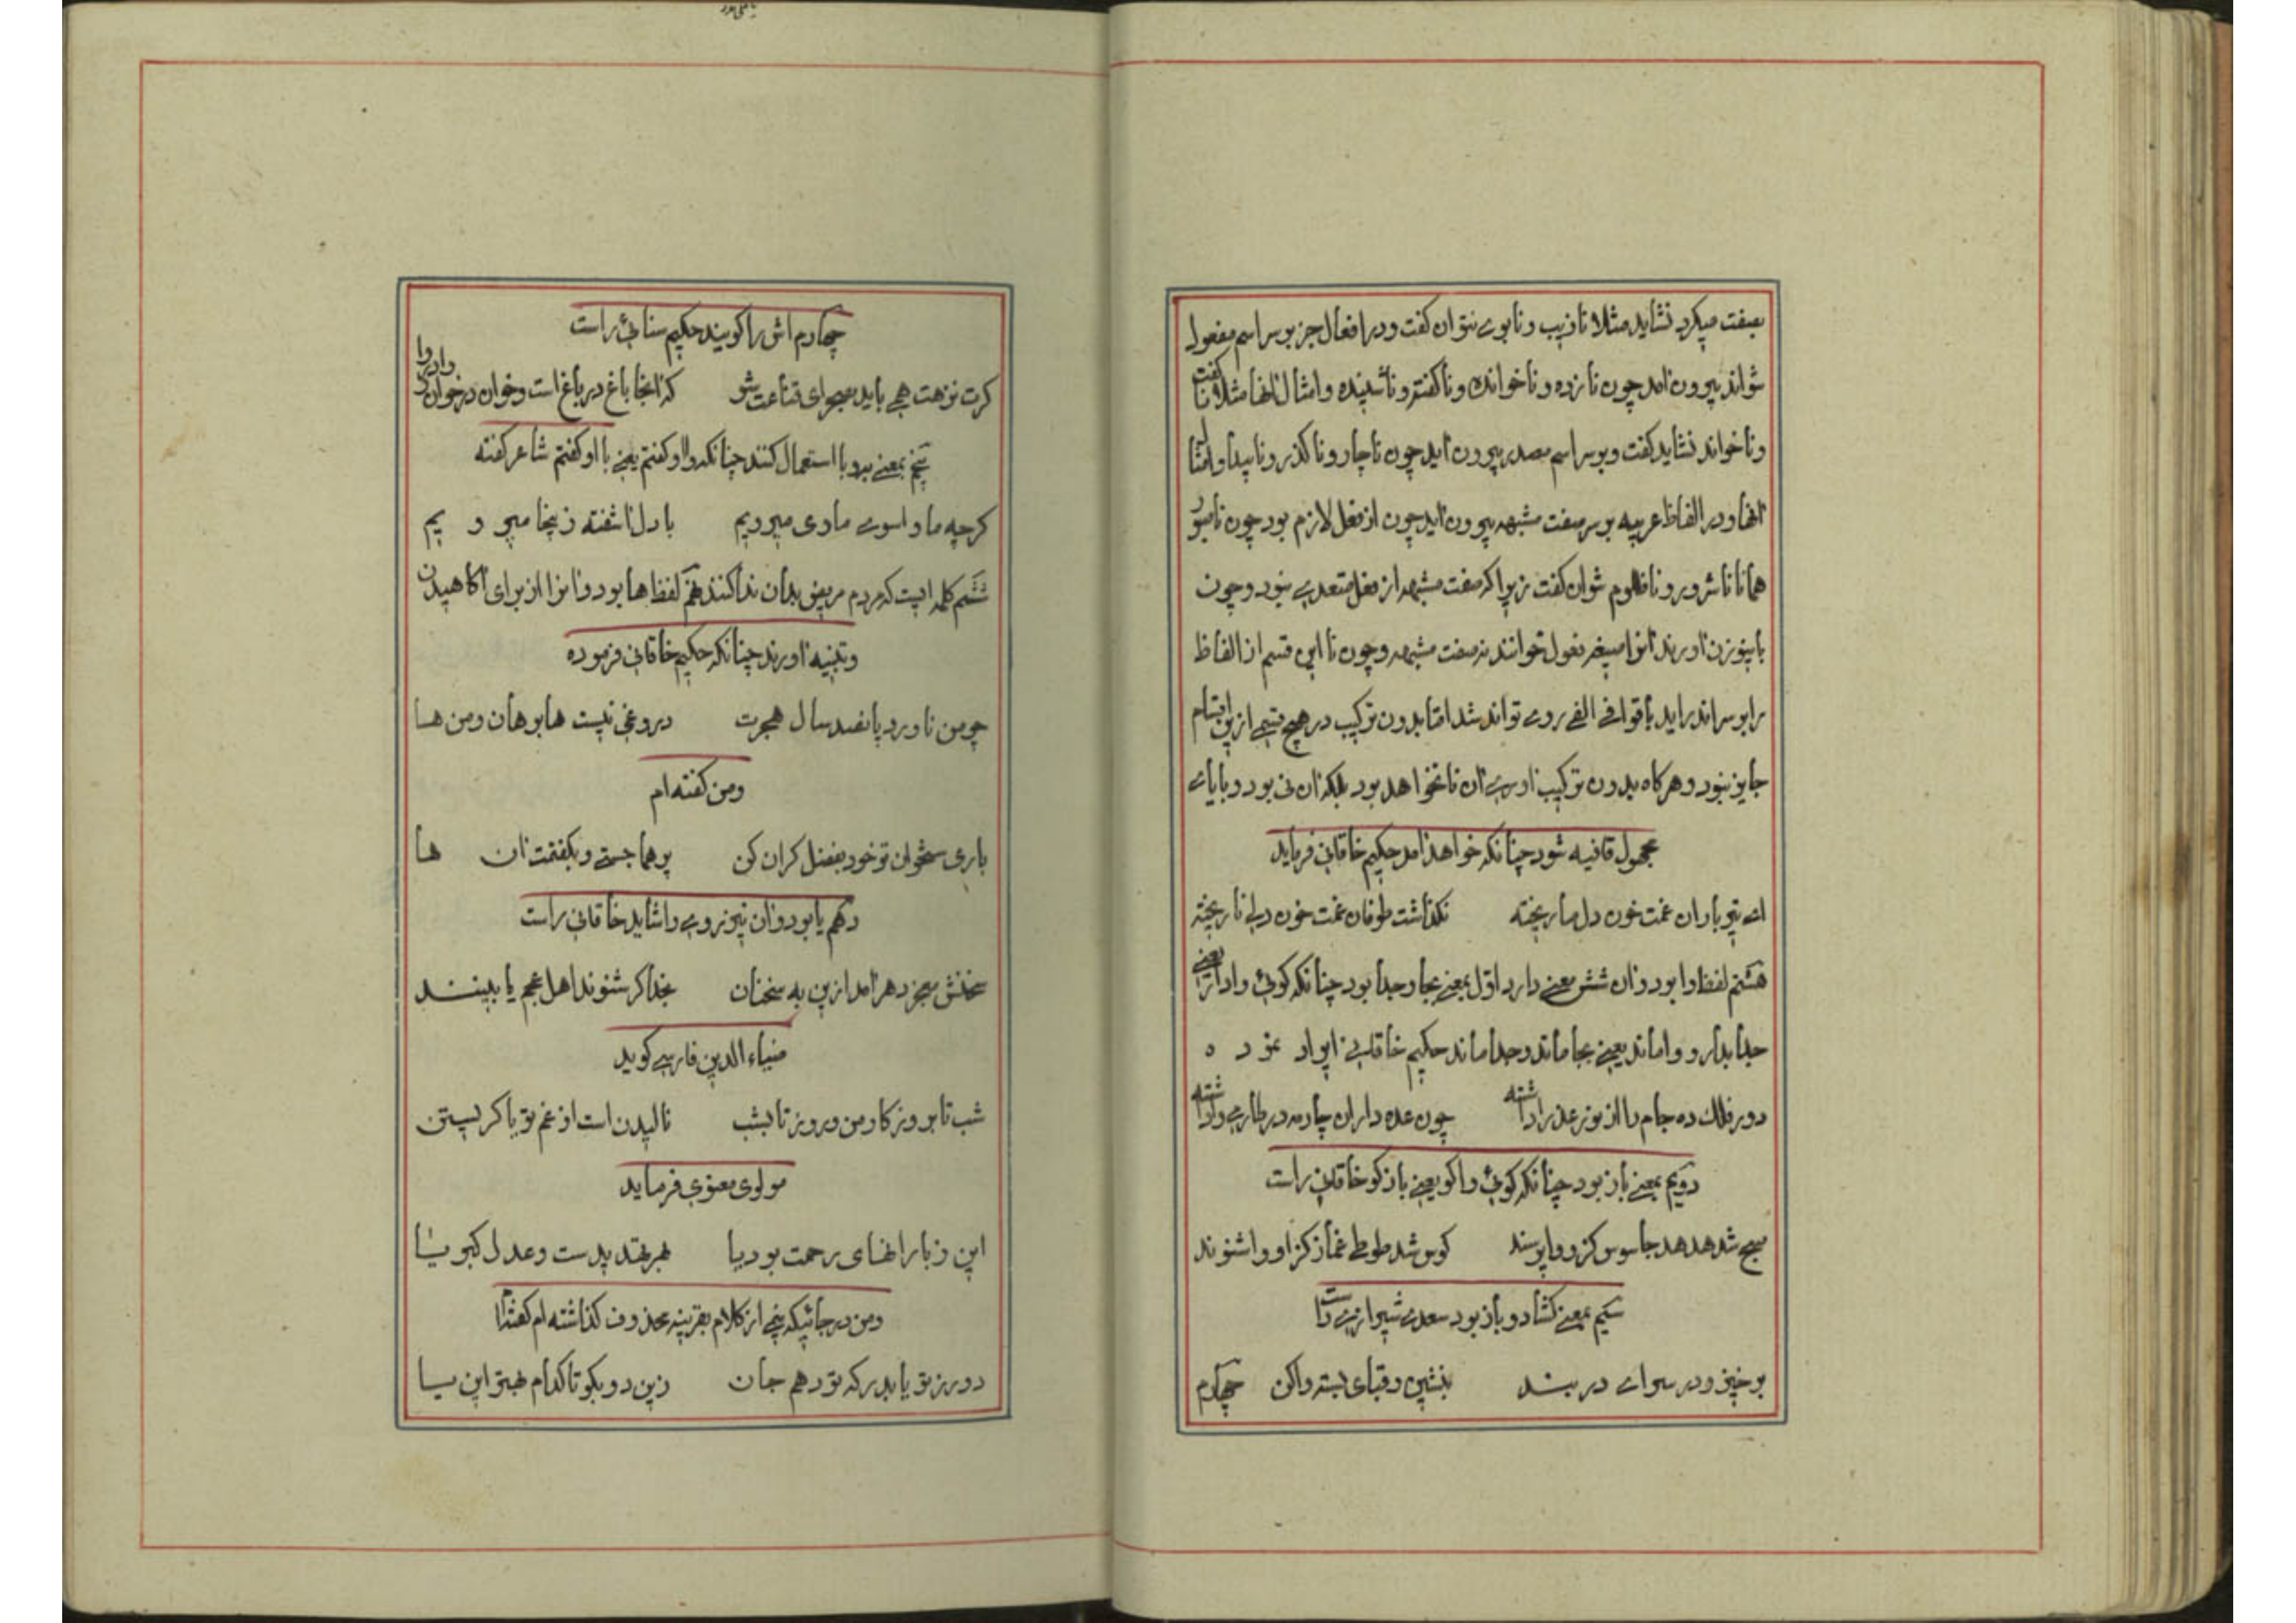 بصفت میکرد نشاید مثلا نازیب و نابوے نتوان کفت و در افعال جز بر سر اسم مفعول
نتواند بیرون امد چون نازده و ناخوانده و ناکفته و ناشنیده و امثال انها مثلا نا کفت
و ناخواند نشاید کفت و بر سر اسم مصدر بیرون اید چون ناچار و ناکذر و ناپیدا و امثال
انها و در الفاظ عربیه بر سر صفت مشبهه بیرون اید چون از فعل لازم بود چون ناصبور
همانا ناشرور و ناظلوم نتوان کفت زیرا که صفت مشبهه از فعل متعدے نبود و چون
باینوزن اورند انرا صیغه فعول خوانند نه صفت مشبهه و چون نا این قسم از الفاظ
را بر سر اندر اید با قوافے الفے روے تواند شد اما بدون ترکیب در هیچ قسمے ازین اقسام
جایز نبود و هر کاه بدون ترکیب اورے ان نا نخواهد بود بلکه ان نی بود و با یاے
مجهول قافیه شود چنانکه خواهد امد حکیم خاقانی فرماید
اے تیر باران غمت خون دل ما ریخته نکذاشت طوفان غمت خون دلے نا ریخته
هشتم لفظ وا بود و ان شش معنے دارد اول بمعنے بجا و جدا بود چنانکه کوئی وادار یعنے
جدا بدار و واماند یعنے بجا ماند و جدا ماند حکیم خاقانی ایراد نموده
دور فلک ده جام را از نور عذرا داشته چون عده داران چارمه در طارمے وا داشته
دویم بمعنے باز بود چنانکه کوئی واکو یعنے باز کو خاقانی راست
صبح شد هدهد جاسوس کزو وا پرسند کوس شد طوطی غماز کز او وا شنوند
سیم بمعنے کشاد و باز بود سعدے شیرازے راست
برخیز و در سراے در بند بنشین و قبای بسته وا کن چهارم
چهارم اش را کویند حکیم سنائی راست
کرت نزهت همے باید بصحرای قناعت شو که انجا باغ در باغ است و خوان در خوان و وا در وا
پنجم بمعنے برو با استعمال کنند چنانکه وا او کفتم یعنے با او کفتم شاعر کفته
کرچه ما وا سوے ماوی میرویم با دل اشفته زینجا میرویم
ششم کلمه ایست که مردم مریض بدان ندا کنند نهم لفظ ها بود و انرا از برای اکاهیدن
و تنبیه اورند چنانکه حکیم خاقانی فرموده
چو من ناورد پانصد سال هجرت دروغی نیست ها برهان و من ها
و من کفته ام
باری سخوان تو خود بفضل کران کن پرهما جستے و بکفتمت ان ها
دهم یا بود و ان نیز روے را شاید خاقانی راست
سخنش معجز دهر امد ازین به سخنان بخدا کر شنوند اهل عجم یا بینند
ضیاء الدین فارسے کوید
شب تا بروز کار من و روز تا بشب نالیدن است از غم تو یا کریستن
مولوی معنوی فرماید
این زبارانهای رحمت بود یا بهر تهدید است و عدل کبریا
و من در جائیکه پنجے از کلام بقرینه محذوف کذاشته ام کفته ام
دور ز تو یا بدر که تو دهم جان زین دو بکو تا کدام بهتر این یا